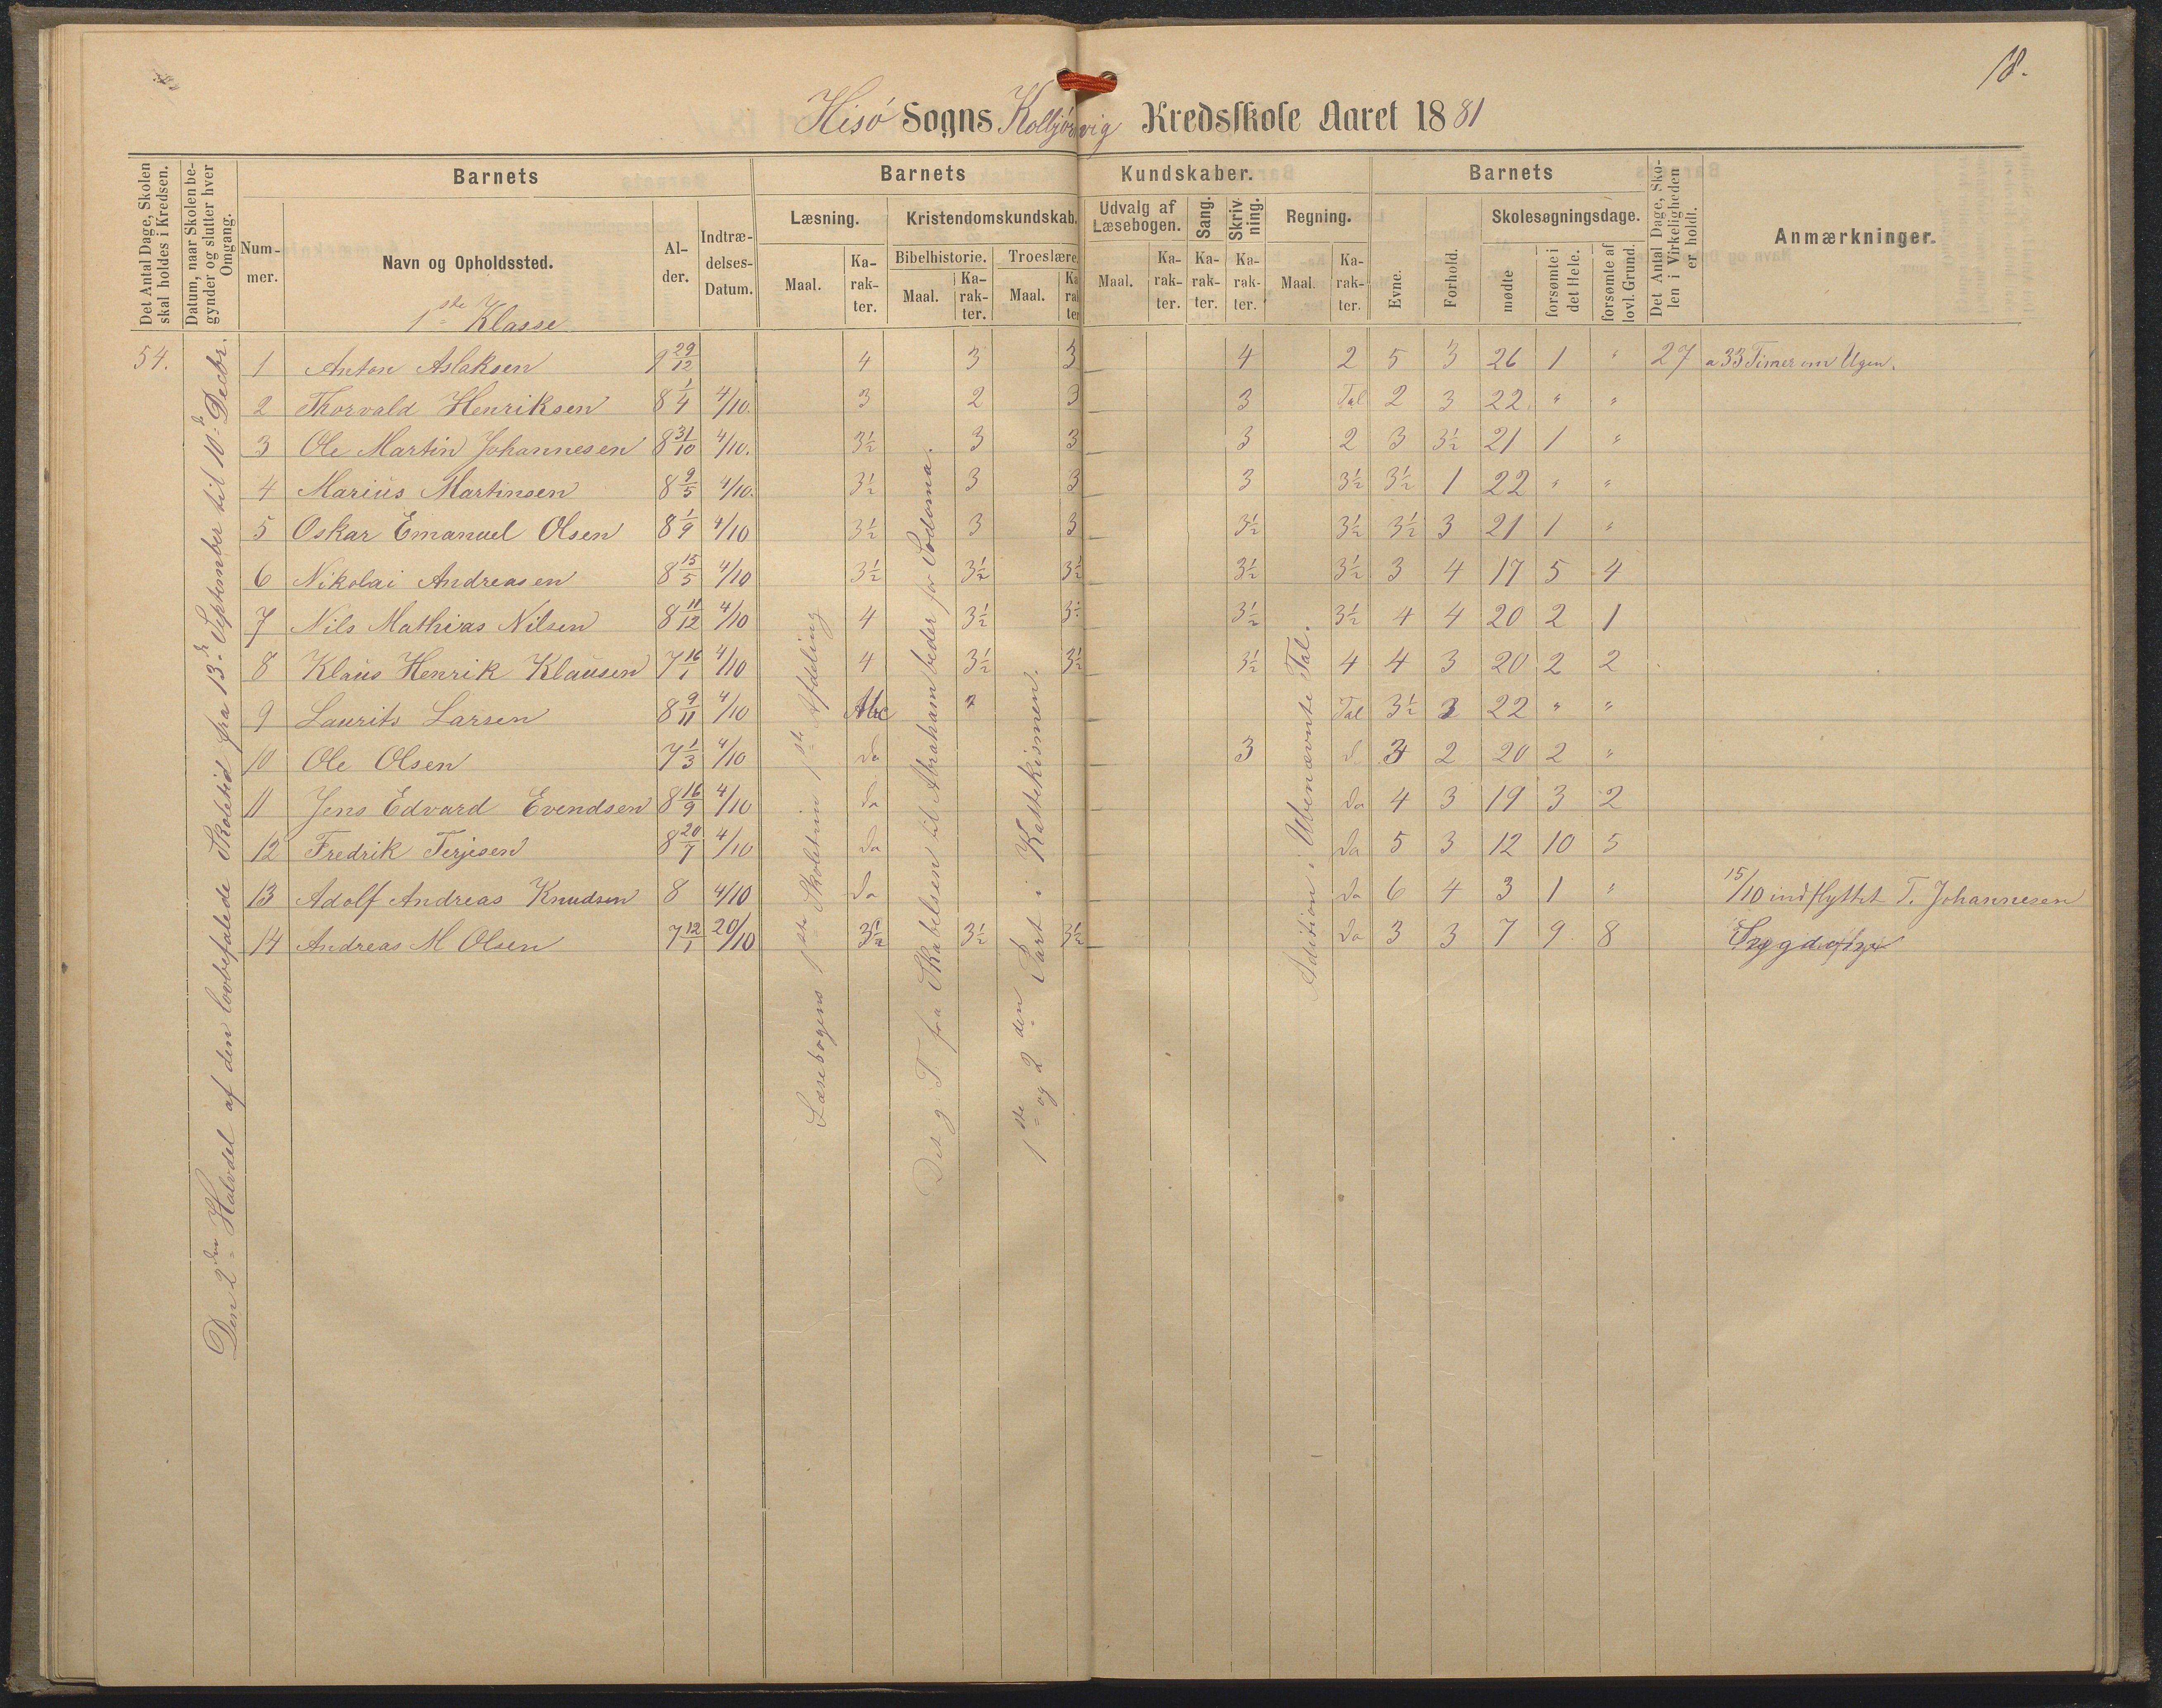 18.
Hisö Sogns Kolbjörnvig Kredsskole Aaret 1881
Det Antal Dage, Skolen skal holdes i Kredsen.
Datum, naar Skolen begynder og slutter hver Omgang.
Barnets
Nummer.
Navn og Opholdssted.
Alder.
Indtrædelses-Datum.
Barnets Kundskaber.
Læsning.
Maal.
Karakter.
Kristendomskundskab.
Bibelhistorie.
Maal.
Karakter.
Troeslære.
Maal.
Karakter.
Udvalg af Læsebogen.
Maal.
Karakter.
Sang.
Karakter.
Skrivning.
Karakter.
Regning.
Maal.
Karakter.
Barnets
Evne.
Forhold.
Skolesøgningsdage.
mødte
forsømte i det Hele.
forsømte af lovl. Grund.
Det Antal Dage, Skolen i Virkeligheden er holdt.
Anmærkninger.
1ste Klasse
54.
Den 2den Halvdel af den lovbefalede Skoletid fra 13de September til 10de Decbr.
Læsebogens 1ste Skoletrin 1ste Afdeling
Det g. T. fra Skabelsen til Abraham beder for Sodoma.
1ste og 2den Part i Kattekismen.
Adition i Ubenævnte Tal.
1 Anton Aslaksen 9 29/12 4 3 3 4 2 5 3 26 1 " 27 a 33 Timer om Ugen.
2 Thorvald Henriksen 8 1/4 4/10. 3 2 3 3 Tal 2 3 22 " "
3 Ole Martin Johannesen 8 31/10 4/10. 3½ 3 3 3 2 3 3½ 21 1 "
4 Marius Martinsen 8 9/5 4/10. 3½ 3 3 3 3½ 3½ 1 22 " "
5 Oskar Emanuel Olsen 8 1/9 4/10 3½ 3 3 3½ 3½ 3½ 3 21 1 "
6 Nikolai Andreasen 8 15/5 4/10 3½ 3½ 3½ 3½ 3½ 3 4 17 5 4
7 Nils Mathias Nilsen 8 11/12 4/10 4 3½ 3½ 3½ 3½ 4 4 20 2 1
8 Klaus Henrik Klausen 7 16/1 4/10 4 3½ 3½ 3½ 4 4 3 20 2 2
9 Laurits Larsen 8 9/11 4/10 Abc Tal 3½ 3 22 " "
10 Ole Olsen 7 1/3 4/10 do 3 d 3 2 20 2 "
11 Jens Edvard Evendsen 8 16/9 4/10 do do 4 3 19 3 2
12 Fredrik Terjesen 8 20/7 4/10 do do 5 3 12 10 5
13 Adolf Andreas Knudsen 8 4/10 do do 6 4 3 1 " 15/10 indflyttet T. Johannesen
14 Andreas M Olsen 7 12/1 20/10 3½ 3½ 3½ do 3 3 7 9 8